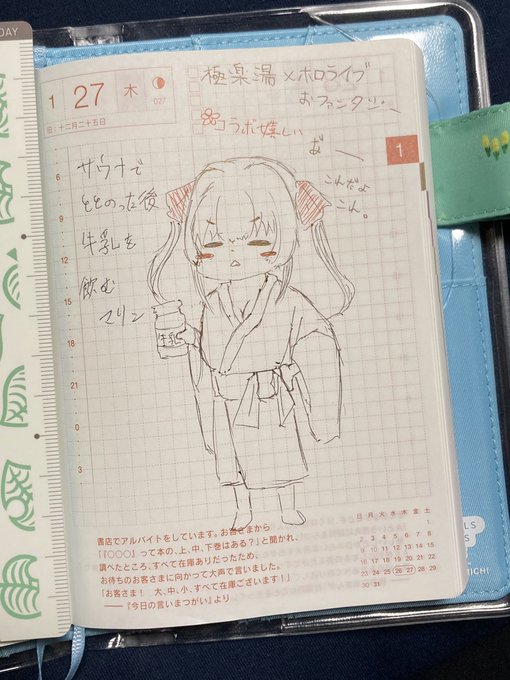 DAY
1 27 木
027
旧:十二月二十五日
極楽湯×ホロライブ
おファンタジー
コラボ嬉しい
お〜
1
これだよ
これ。
サウナで
ととのった後
牛乳を
飲む
マリン
牛乳
6
9
12
15
18
21
0
3
書店でアルバイトをしています。お客さまから
「『○○○』って本の、上、中、下巻はある?」と聞かれ、
調べたところ、すべて在庫ありだったため、
お待ちのお客さまに向かって大声で言いました。
「お客さま! 大、中、小、すべて在庫ございます!」
──『今日の言いまつがい』より
日 月 火 水 木 金 土
1
2 3 4 5 6 7 8
9 10 11 12 13 14 15
16 17 18 19 20 21 22
23 24 25 26 27 28 29
30 31